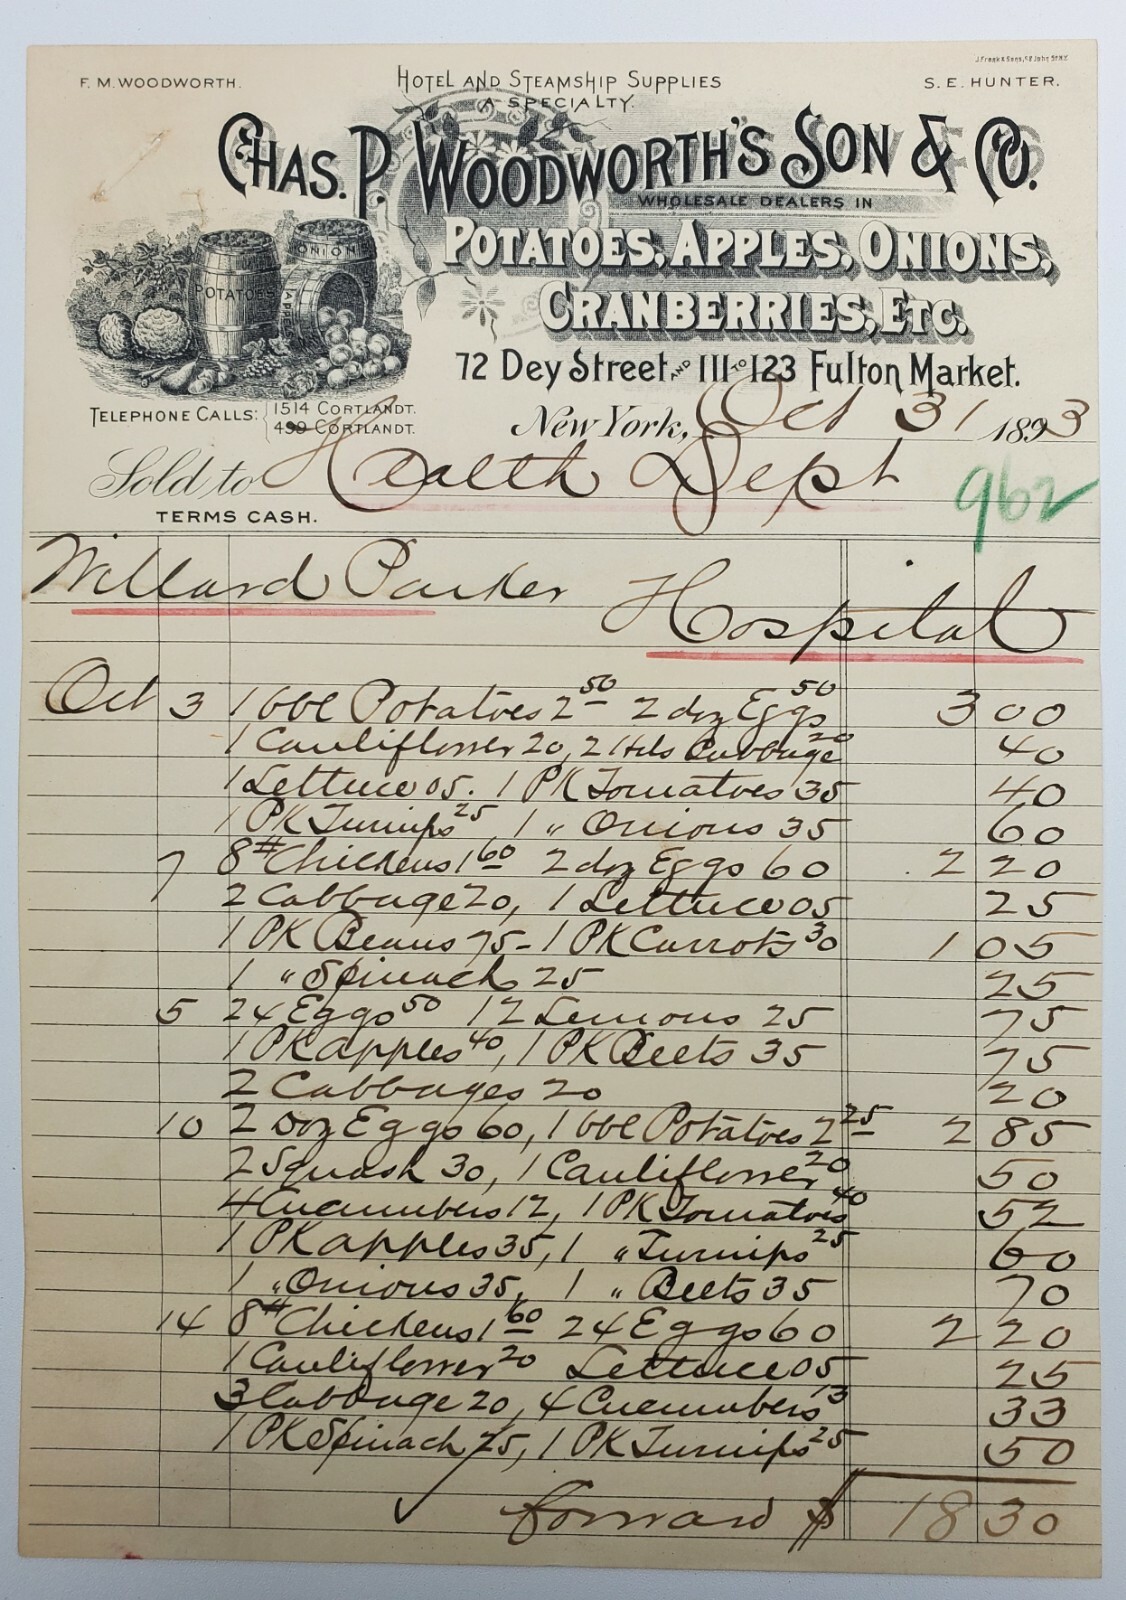 J. Frank & Sons, 52 John St. N.Y.
F. M. WOODWORTH.
HOTEL AND STEAMSHIP SUPPLIES
A SPECIALTY.
S. E. HUNTER.
CHAS. P. WOODWORTH'S SON & CO.
WHOLESALE DEALERS IN
POTATOES, APPLES, ONIONS,
CRANBERRIES, ETC.
POTATOES
ONION
APPLES
72 Dey Street AND 111 TO 123 Fulton Market.
TELEPHONE CALLS: 1514 CORTLANDT.
499 CORTLANDT.
New York, Oct 31 1893
Sold to Health Dept 962
TERMS CASH.
Willard Parker Hospital
Oct 3 1 bbl Potatoes 2 50 2 doz Eggs 50 3 00
1 Cauliflower 20, 2 Hds Cabbage 20 40
1 Lettuce 05. 1 PK Tomatoes 35 40
1 PK Turnips 25, 1 " Onions 35 60
7 8# Chickens 1 60 2 doz Eggs 60 2 20
2 Cabbage 20, 1 Lettuce 05 25
1 PK Beans 75 - 1 PK Carrots 30 1 05
1 " Spinach 25 25
5 24 Eggs 50 12 Lemons 25 75
1 PK apples 40, 1 PK Beets 35 75
2 Cabbages 20 20
10 2 Doz Eggs 60, 1 bbl Potatoes 2 25 2 85
2 Squash 30, 1 Cauliflower 20 50
4 Cucumbers 12, 1 PK Tomatoes 40 52
1 PK apples 35, 1 " Turnips 25 60
1 " Onions 35, 1 " Beets 35 70
14 8# Chickens 1 60 24 Eggs 60 2 20
1 Cauliflower 20 Lettuce 05 25
3 Cabbage 20, 4 Cucumbers 13 33
1 PK Spinach 25, 1 PK Turnips 25 50
forward $ 18 30